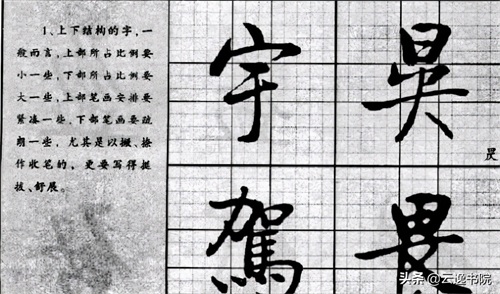 1、上下结构的字,一
般而言,上部所占比例要
小一些,下部所占比例要
大一些,上部笔画安排要
紧凑一些、下部笔画要疏
朗一些,尤其是以撇、捺
作收笔的,更要写得挺
拔、舒展。
宇 昊
駕
头条@云逸书院